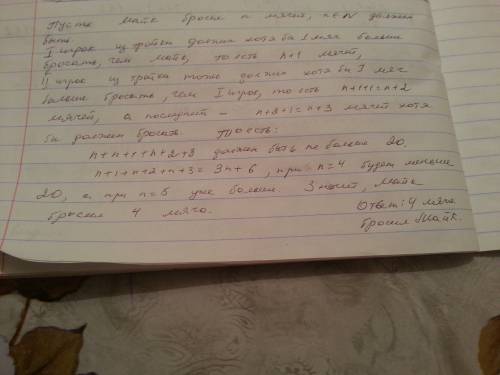 Пусть Майк бросил n мячей, n∈N должен
быть.
I игрок из тройки должен хотя бы 1 мяч больше
бросать, чем Майк, то есть n+1 мячей,
II игрок из тройки тоже должен хотя бы 1 мяч
больше бросать, чем I игрок, то есть n+1+1=n+2
мячей, а последний — n+2+1=n+3 мячей хотя
бы должен бросать. То есть:
n+n+1+n+2+3 должен быть не больше 20.
n+1+n+2+n+3=3n+6, при n=4 будет меньше
20, а при n=5 уже больше. Значит, Майк
бросил 4 мяча.
Ответ: 4 мяча
бросил Майк.